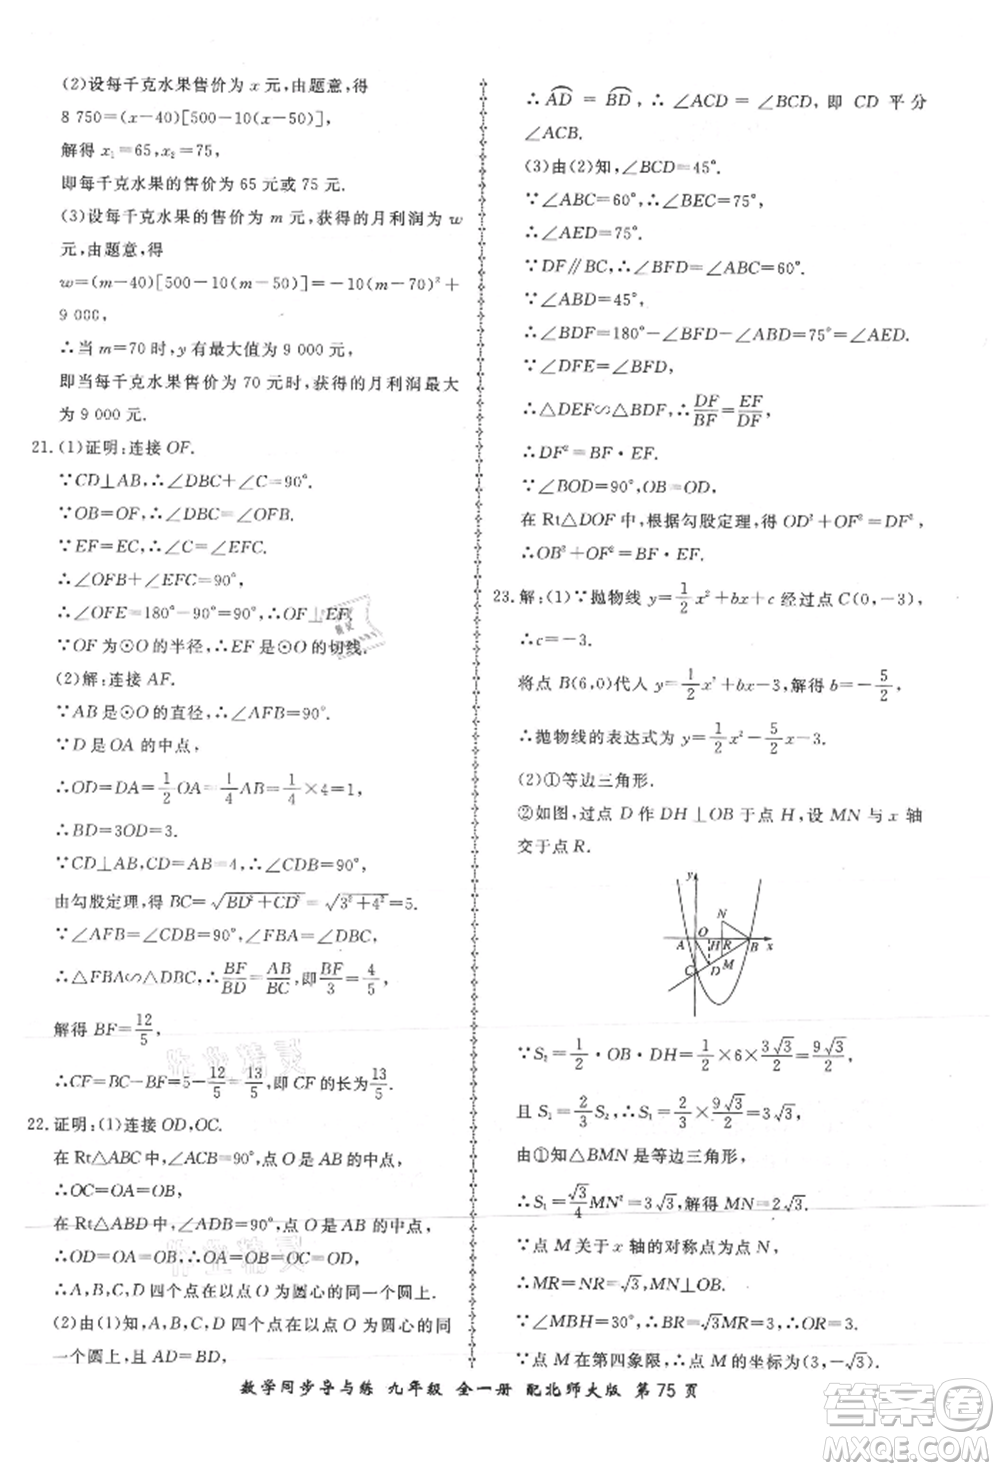 (2)设每千克水果售价为 x 元,由题意,得
8 750=(x-40)[500-10(x-50)],
解得 x₁=65,x₂=75,
即每千克水果的售价为 65 元或 75 元.
(3)设每千克水果的售价为 m 元,获得的月利润为 w
元,由题意,得
w=(m-40)[500-10(m-50)]=-10(m-70)²+
9 000,
∴当 m=70 时,y 有最大值为 9 000 元,
即当每千克水果售价为 70 元时,获得的月利润最大
为 9 000 元.
21.(1)证明:连接 OF.
∵CD⊥AB,∴∠DBC+∠C=90°.
∵OB=OF,∴∠DBC=∠OFB.
∵EF=EC,∴∠C=∠EFC.
∴∠OFB+∠EFC=90°.
∴∠OFE=180°-90°=90°,∴OF⊥EF.
∵OF 为⊙O 的半径,∴EF 是⊙O 的切线.
(2)解:连接 AF.
∵AB 是⊙O 的直径,∴∠AFB=90°.
∵D 是 OA 的中点,
∴OD=DA=1/2 OA=1/4 AB=1/4×4=1,
∴BD=3OD=3.
∵CD⊥AB,CD=AB=4,∴∠CDB=90°,
由勾股定理,得 BC=√(BD²+CD²)=√(3²+4²)=5.
∵∠AFB=∠CDB=90°,∠FBA=∠DBC,
∴△FBA∽△DBC,∴BF/BD=AB/BC,即BF/3=4/5,
解得 BF=12/5,
∴CF=BC-BF=5-12/5=13/5,即 CF 的长为13/5.
22.证明:(1)连接 OD,OC.
在 Rt△ABC 中,∠ACB=90°,点 O 是 AB 的中点,
∴OC=OA=OB,
在 Rt△ABD 中,∠ADB=90°,点 O 是 AB 的中点,
∴OD=OA=OB,∴OA=OB=OC=OD,
∴A,B,C,D 四个点在以点 O为圆心的同一个圆上.
(2)由(1)知,A,B,C,D 四个点在以点 O 为圆心的同
一个圆上,且 AD=BD,
∴AD = BD,∴∠ACD=∠BCD,即 CD 平分
∠ACB.
(3)由(2)知,∠BCD=45°.
∵∠ABC=60°,∴∠BEC=75°,
∴∠AED=75°.
∵DF∥BC,∴∠BFD=∠ABC=60°.
∵∠ABD=45°,
∴∠BDF=180°-∠BFD-∠ABD=75°=∠AED.
∵∠DFE=∠BFD,
∴△DEF∽△BDF,∴DF/BF=EF/DF,
∴DF²=BF·EF.
∵∠BOD=90°,OB=OD,
在 Rt△DOF 中,根据勾股定理,得 OD²+OF²=DF²,
∴OB²+OF²=BF·EF.
23.解:(1)∵抛物线 y=1/2x²+bx+c 经过点 C(0,-3),
∴c=-3.
将点 B(6,0)代人 y=1/2x²+bx-3,解得 b=-5/2,
∴抛物线的表达式为 y=1/2x²-5/2x-3.
(2)①等边三角形.
②如图,过点 D 作 DH⊥OB 于点 H,设 MN 与 x 轴
交于点 R.
y
N
A O H R B x
M
C D
∵S₂=1/2·OB·DH=1/2×6×3√3/2=9√3/2,
且 S₁=2/3S₂,∴S₁=2/3×9√3/2=3√3.
由①知△BMN 是等边三角形,
∴S₁=√3/4MN²=3√3,解得 MN=2√3.
∵点 M 关于 x 轴的对称点为点 N,
∴MR=NR=√3,MN⊥OB.
∵∠MBH=30°,∴BR=√3MR=3,∴OR=3.
∵点 M 在第四象限,∴点 M 的坐标为(3,-√3).
数学同步导与练 九年级 全一册 配北师大版 第 75 页
答案卷
MXQE.COM
作业精灵
作业精灵